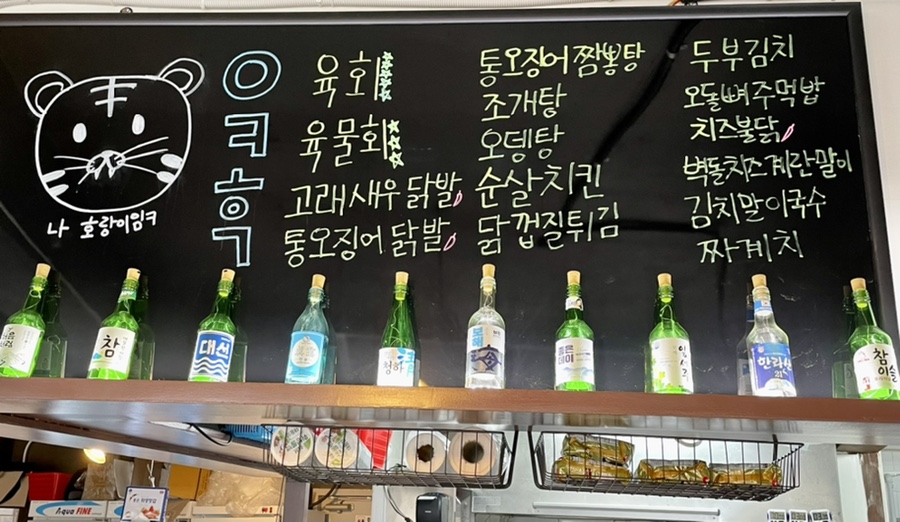 나 호랑이임ㅋ
으
ㅋ
흑
육회
육물회
고래새우 닭발
통오징어 닭발
통오징어짬뽕탕
조개탕
오뎅탕
순살치킨
닭껍질튀김
두부김치
오돌뼈주먹밥
치즈불닭
벽돌치즈계란말이
김치말이국수
짜계치
참
대선
청하
한라산
21
참
이슬
Aqua FINE